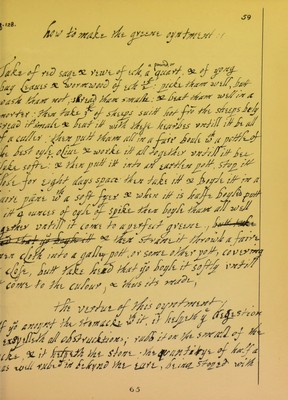 59
how to make the greene oyntment
Take of red sage & rewe of ich a quart, & of yong
bay leaves & wormwood of ich picke them well, but
wash them not, shred them smalle & beat them well in a
morter, then take of sheepes suit hot from the sheeps bely
shread it smale & beat it with these hearbes untill it be all
of a culler, then putt them all in a faire boule & a pottle of
the best oyle olive & worke it all together untill it bee
like softe & then putt it into an earthen pott stop itt
close for eight dayes space then take itt & boyle it in a
faire pane with a soft fyer & when it is halfe boyled putt
in it 4 unces of oyle of spike then boyle them all well
together untill it come to a perfect greene,
& then straine it throwgh a faire
cloth into a galley pott, or some other pott, covering
close, butt take head that yo boyle it softly untill
come to the culour, & thus its made,
the vertue of this oyntment
If yo anoynt the stomacke with it, it helpeth digestion
& expelleth all obstructions, rubb it on the small of the
backe, & it helpeth the stone the quantatye of half a
as well rubed in behynd the eare, being stoped with
65